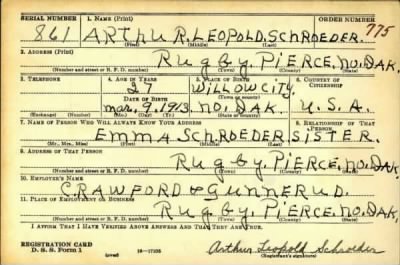 SERIAL NUMBER 1. NAME (Print) ORDER NUMBER
861 ARTHUR. R. LEOPOLD. SCHROEDER. 775
(First) (Middle) (Last)
2. ADDRESS (Print)
Rugby. PIERCE. NO. DAK.
(Number and street or R. F. D. number) (Town) (County) (State)
3. TELEPHONE 4. AGE IN YEARS 5. PLACE OF BIRTH 6. COUNTRY OF CITIZENSHIP
27 WILLOW CITY
DATE OF BIRTH (Town or county)
mar. 9. 1913. NO. DAK. U. S. A.
(Exchange) (Number) (Mo.) (Day) (Yr.) (State or country)
7. NAME OF PERSON WHO WILL ALWAYS KNOW YOUR ADDRESS 8. RELATIONSHIP OF THAT PERSON
EMMA SCHROEDER SISTER.
(Mr., Mrs., Miss) (First) (Middle) (Last)
9. ADDRESS OF THAT PERSON
Rugby. PIERCE. NO. DAK.
(Number and street or R. F. D. number) (Town) (County) (State)
10. EMPLOYER'S NAME
CRAWFORD & GUNNERUD.
11. PLACE OF EMPLOYMENT OR BUSINESS
Rugby. PIERCE. NO. DAK.
(Number and street or R. F. D. number) (Town) (County) (State)
I AFFIRM THAT I HAVE VERIFIED ABOVE ANSWERS AND THAT THEY ARE TRUE.
REGISTRATION CARD
D. S. S. Form 1 (over) 16—17105 Arthur Leopold Schroeder
(Registrant's signature)